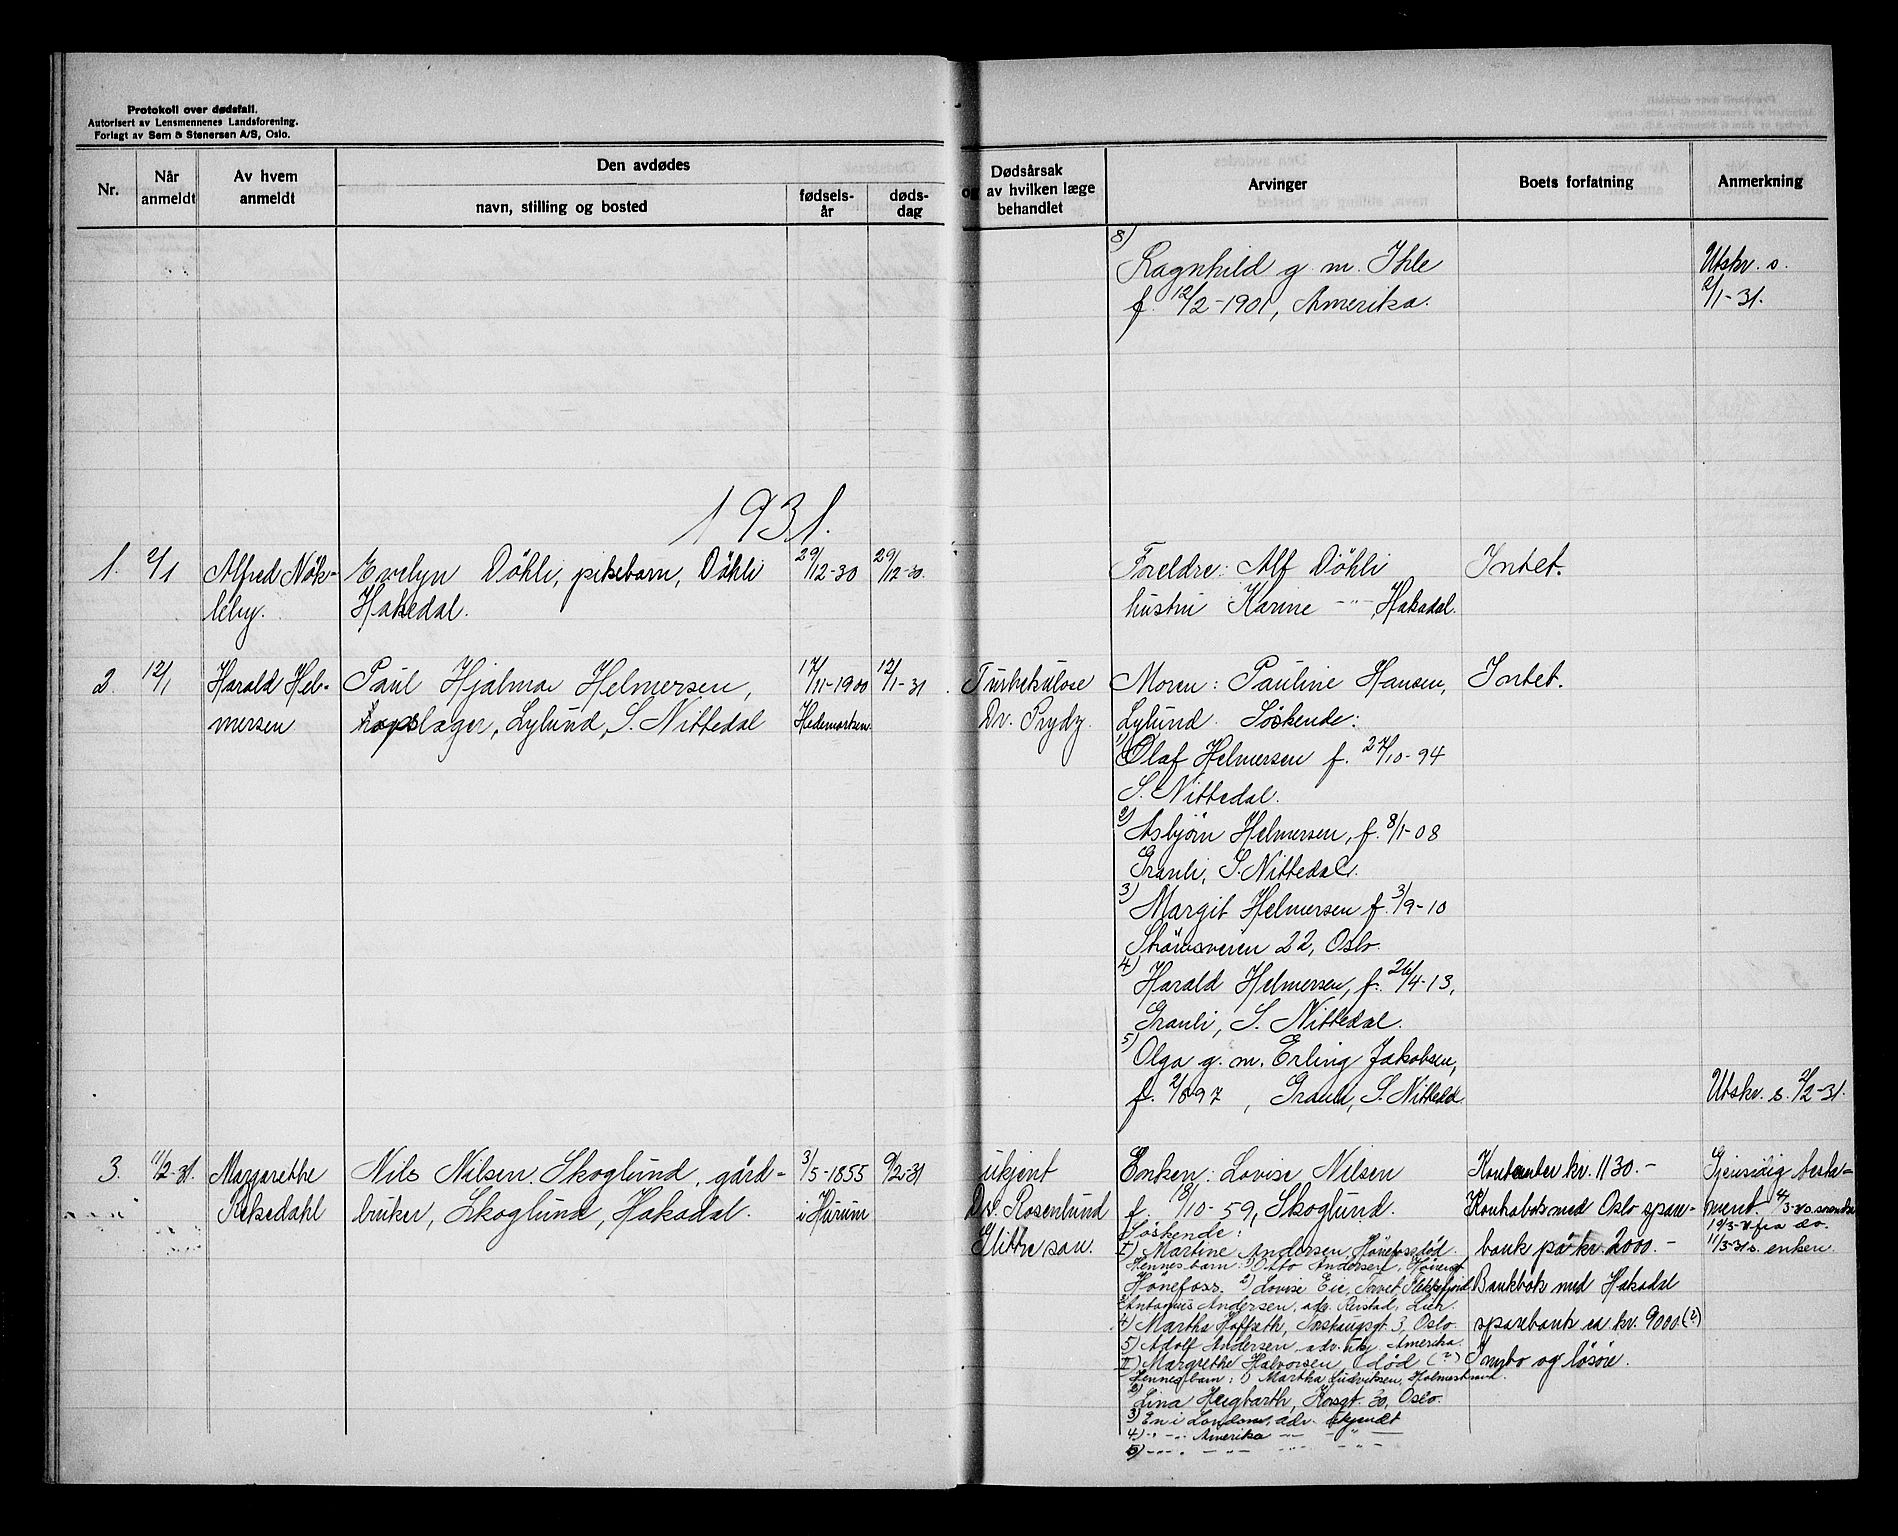 Protokoll over dødsfall.
Autorisert av Lensmennenes Landsforening.
Forlagt av Sem & Stenersen A/S, Oslo.
Nr.
Når anmeldt
Av hvem anmeldt
Den avdødes
navn, stilling og bosted
fødselsår
dødsdag
Dødsårsak
og av hvilken læge
behandlet
Arvinger
Boets forfatning
Anmerkning
8)
Ragnhild g. m. Ihle
f. 12/2-1901, Amerika.
Utskr. s.
2/1-31.
1931.
1. 2/1 Alfred Nök- Evelyn Döhli, pikebarn, Döhli 29/12-30 29/12-30. Foreldre: Alf Döhli Intet.
leby. Hakedal. hustru Karine -"- Hakadal.
2. 12/1 Harald Hel- Paul Hjalmar Helmersen, 17/11-1900 12/1-31. Turbekulose Moren: Pauline Hansen, Intet.
mersen lager, Lylund, S. Nittedal Hedemarken Dr. Prydz. Lylund. Söskende:
1) Olaf Helmersen f. 27/10-94
S. Nittedal.
2) Asbjörn Helmersen, f. 8/1-08
Granli, S. Nittedal.
3) Margit Helmersen f. 3/9-10
Strömsveien 22, Oslo.
4)
Harald Helmersen, f. 26/4-13,
Granli, S. Nittedal.
5)
Olga g. m. Erling Jakobsen,
f. 97, Granli, S. Nittedal. Utskr. s. 2/2-31.
3. 11/2-31. Margarethe Nils Nilsen Skoglund, gård- 3/5-1855 9/2-31 ukjent Enken: Lovise Nilsen Kontanter kr. 1130.- Gjensidig testa-
Kiksedahl bruker, Skoglund, Hakadal. i Hurum Dr. Rosenlund f. 18/10-59, Skoglund. Kontrabok med Oslo spar- ment. 4/3-
Söskende: 10/3- fra do.
Glittre san. I) Martine Andersen, Hönefoss död. bank på kr. 2000.- 11/3-31 s. enken.
Hennes barn: 1) Otto Andersen,
Hönefoss. 2) Lovise Eie, Torvet, Flekkefjord Bankbok med Hakadal
3) Antonius Andersen, adr. Reistad, Lier.
4) Martha Hoffath, 3, Oslo. sparebank ca kr. 9000 (?)
5) Adolf Andersen adr. Amerika.
II) Margrethe Halvorsen död (?) Innbo og lösöre.
Hennes barn: 1) Martha Ludviksen, Holmestrand.
2)
Lina Heigbarth, Korsgt. 30, Oslo.
3) En i London, adr. ukjendt
4) -"- -"- Amerika -"- -"-
5) -"- -"- -"- -"- -"-